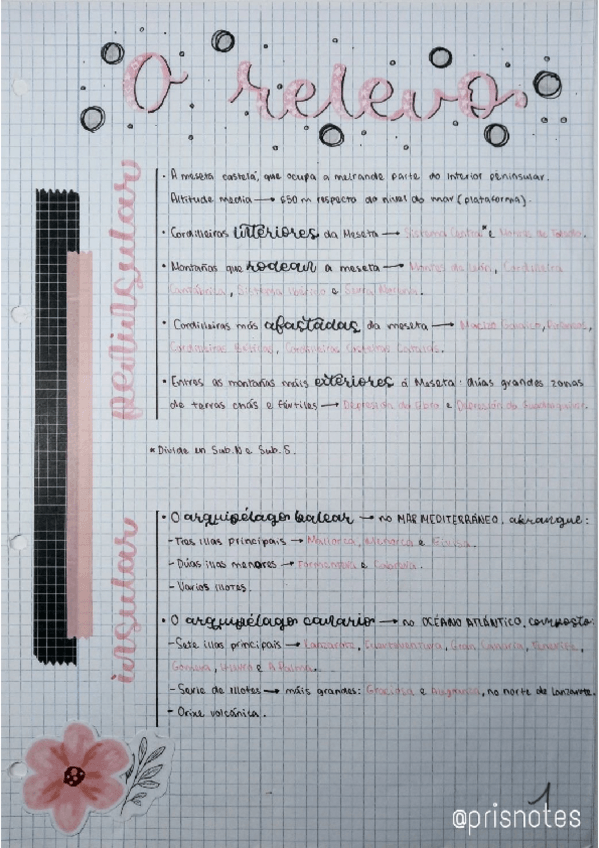 O relevo
peninsular
• A meseta castelá, que ocupa a meirande parte do interior peninsular.
Altitude media → 650 m respecto do nivel do mar (plataforma).
• Cordilleiras interiores da Meseta → Sistema Central* e Montes de Toledo.
• Montañas que rodean a meseta → Montes de León, Cordilleira
Cantábrica, Sistema Ibérico e Serra Morena.
• Cordilleiras más afastadas da meseta → Macizo Galaico, Pirineos,
Cordilleiras Béticas, Cordilleiras Costeiras Catalás.
• Entres as montañas máis exteriores á Meseta: dúas grandes zonas
de terras chás e fértiles → Depresión do Ebro e Depresión do Guadalquivir.
* Divide en Sub.N e Sub.S.
insular
• O arquipélago balear → no MAR MEDITERRÁNEO, abrangue:
- Tres illas principais → Mallorca, Menorca e Eivisa.
- Dúas illas menores → Formentera e Cabrera.
- Varios illotes.
• O arquipélago canario → no OCÉANO ATLÁNTICO, composto:
- Sete illas principais → Lanzarote, Fuerteventura, Gran Canaria, Tenerife,
Gomera, Hierro e A Palma.
- Serie de illotes → máis grandes: Graciosa e Alegranza, no norte de Lanzarote.
- Orixe volcánica.
1
@prisnotes